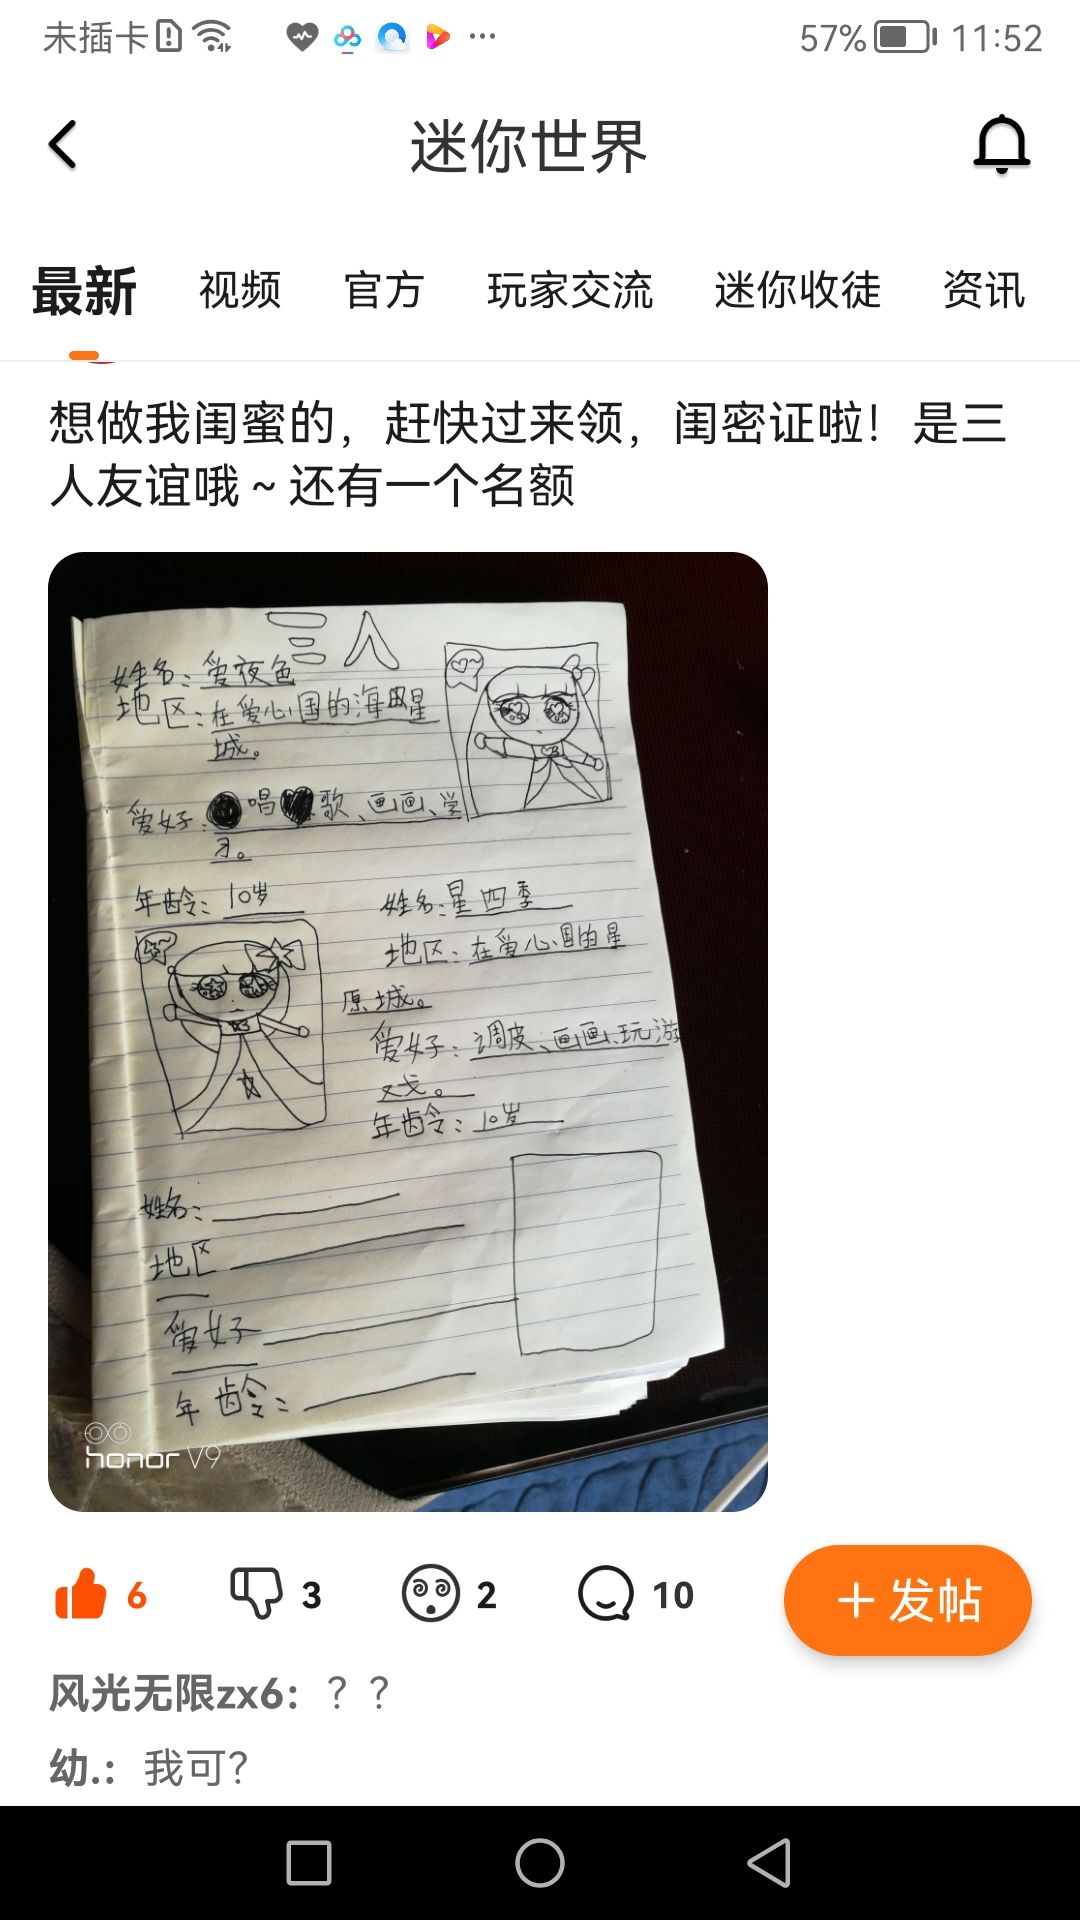 未插卡
57% 11:52
迷你世界
最新 视频 官方 玩家交流 迷你收徒 资讯
想做我闺蜜的，赶快过来领，闺密证啦！是三
人友谊哦～还有一个名额
三人
姓名：爱夜色
地区：在爱心国的海星
城。
爱好：唱歌、画画、学
习。
年龄：10岁
姓名：星四季
地区：在爱心国的星
原城。
爱好：调皮、画画、玩游
戏。
年龄：10岁
姓名：
地区
爱好
年龄：
honor V9
6 3 2 10
+ 发帖
风光无限zx6：？？
幼.：我可？